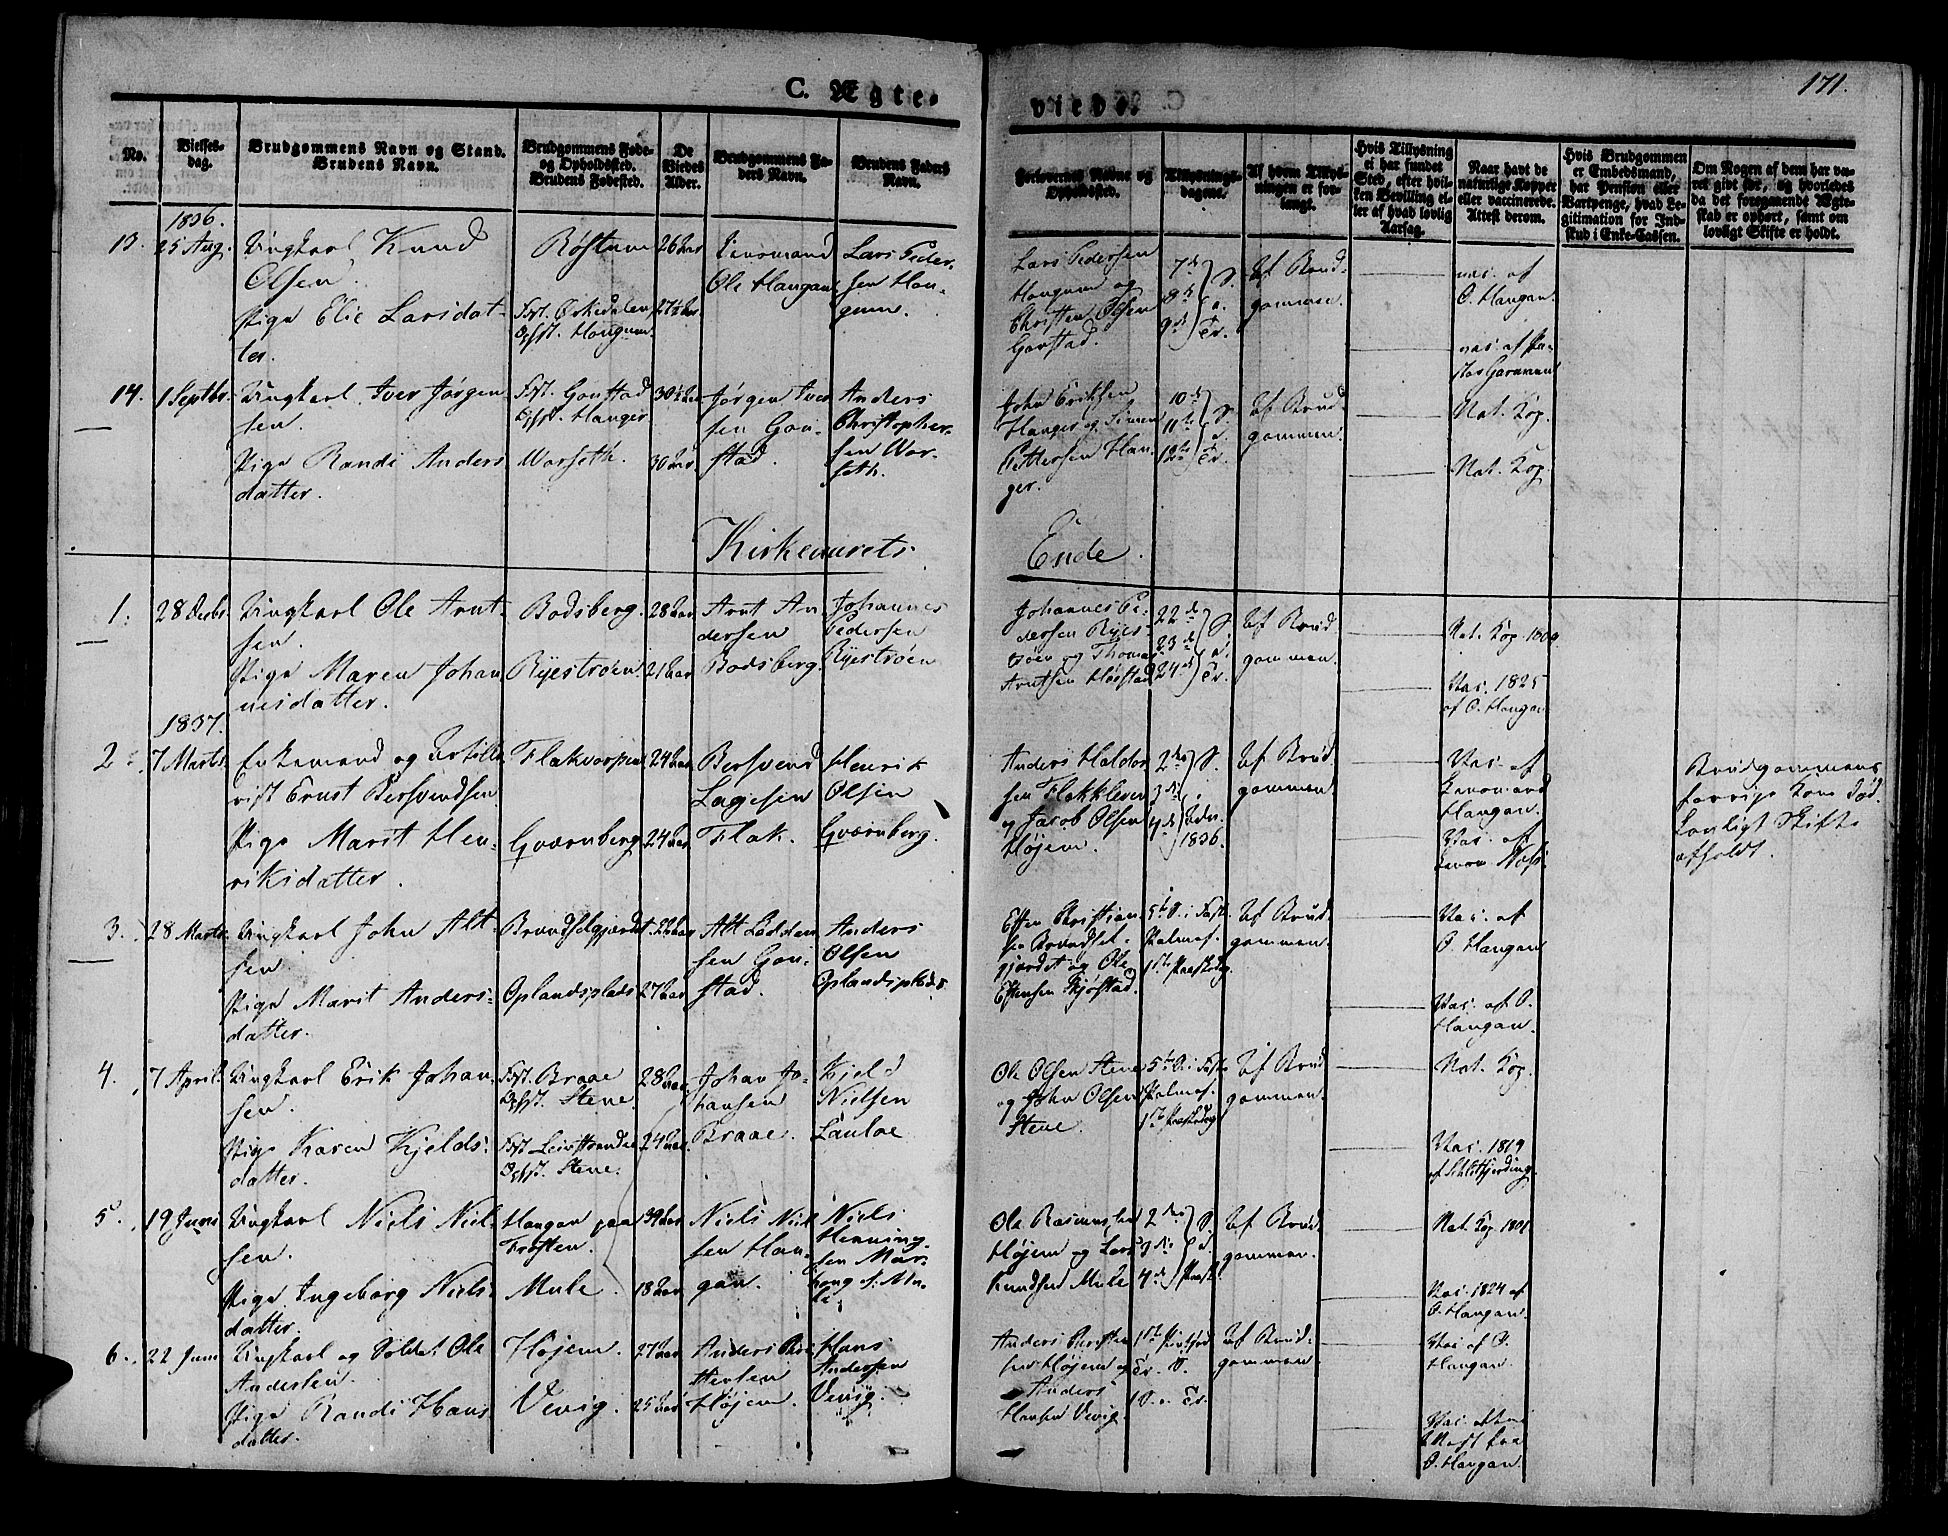 C. Ægte-
viede.
171.
No.
Vielses-
dag.
Brudgommens Navn og Stand.
Brudens Navn.
Brudgommens Føde-
og Opholdssted.
Brudens Fødested.
De
Viedes
Alder.
Brudgommens Fa-
ders Navn.
Brudens Faders
Navn.
Forlovernes Navne og
Opholdssted.
Tillysnings-
dagene.
Af hvem Tillys-
ningen er for-
langt.
Hvis Tillysning
ei har fundet
Sted, efter hvil-
ken Bevilling el-
ler af hvad lovlig
Aarsag.
Naar havt de
naturlige Kopper
eller vaccinerede.
Attest derom.
Hvis Brudgommen
er Embedsmand,
har Pension eller
Vartpenge, hvad Le-
gitimation for Ind-
skud i Enke-Cassen.
Om Nogen af dem har væ-
ret gift før, og hvorledes
da det foregaaende Ægte-
skab er ophørt, samt om
lovligt Skifte er holdt.
1836.
13. 25 Aug. Ungkarl Knud
Olsen.
Pige Elie Larsdat-
ter.
Røstum
Fst. Orkedalen
Opst. Haugum.
26 Aar
27½ Aar
Ole Haugan
Lars Peder-
sen Hau-
gum.
Lars Pedersen
Haugum og
Christen Olsen
Gaustad.
7de
8de
9de
S.
a.
Tr.
Af Brud-
gommen.
vac. af
O. Haugan.
vac. af Pa-
14. 1 Septbr. Ungkarl Iver Jørgen-
sen.
Pige Randi Anders
datter.
Fst. Gaustad
Opst. Hanger
Warseth.
30½ Aar
30 Aar
Jørgen Iver
sen Gau-
stad.
Anders
Christopher-
sen War-
seth.
John Eriksen
Hanger og Simen
Pettersen Han-
ger.
10de
11te
12te
S.
a.
Tr.
Af Brud
gommen.
Nat. Kop.
Nat. Kop.
Kirkeaarets
Ende.
1. 28 Decbr. Ungkarl Ole Arnt-
sen.
Pige Maren Johan
nesdatter.
Bodsberg.
Ryestrøen
28 Aar
21 Aar
Arnt An
dersen
Bodsberg.
Johannes
Pedersen
Ryestrøen
Johannes Pe-
dersen Ryes-
trøen og Thomas
Arntsen Hørstad
22de
23de
24de
S.
a.
Tr.
Af Brud
gommen.
Nat. Kop. 180
Vac. 1825
af O. Haugan
1837.
2. 7 Marts. Enkemand og Artille
rist Ernst Bersvendsen
Pige Marit Hen-
riksdatter.
Flakvorpen
Gværnberg
24 Aar
24 Aar
Bersvend
Lagesen
Flak.
Henrik
Olsen
Gværnberg.
Anders Haldor
sen Flakkleven
og Jacob Olsen
Højem.
2den
3de
4de
S.
Adv.
1836.
Af Brud
gommen.
Vac. af
Haugan.
Vac. af
Brudgommens
forrige Kone død.
Lovligt Skifte
afholdt.
3. 28 Marts Ungkarl John Alt-
sen.
Pige Marit Anders-
datter.
Brandselgjerdet.
Oplandsplads
27 Aar
sen Gau-
stad.
Anders
Olsen
Oplandsplads
Esten Christian-
sen Brandsel-
gjerdet og Ole
Estensen Kjøstad.
5te S. i Fast.
Palmes.
1ste Paaskedag.
Af Brud-
gommen.
Vac. af
O. Haugan
Vac. af O.
Haugan.
4. 7 April. Ungkarl Erik Johan
sen.
Pige Karen Kjelds-
datter.
Fst. Braae
Opst. Stene.
Fst. Leinstranden
Opst. Stene.
28 Aar
24 Aar
Johan Jo-
hansen
Braae.
Kjeld
Nielsen
Ole Olsen Stene
og John Olsen
Stene
5te S. i Fast.
Palmes.
1ste Paaskedag
Af Brud
gommen.
Nat. Kop.
Vac. 1819
5. 19 Juni Ungkarl Niels Niel-
sen.
Pige Ingeborg Niels-
datter.
Haugan paa
Frosten.
Mule.
39 Aar
18 Aar
Niels Niel
sen Hau-
gan.
Niels
Henning-
sen
Ole Rasmussen
Højem og Lars
Knudsen Mule
2den
3die
4de
S.
Paaske.
Af Brud
gommen.
Nat. Kop. 1801
Vac. 1824 af
O. Haugan.
6. 22 Juni Ungkarl og Soldat Ole
Andersen.
Pige Randi Hans
datter.
Højem.
Vevig.
27 Aar
25 Aar
Anders Chri
stensen
Højem.
Hans
Andersen
Vevig.
Anders Christen
sen Højem og
Anders
Hansen Vevig.
Tr. S.
1 S. e. Tr.
Af Brud-
gommen.
Vac. af O.
Haugan.
O. Haugan.